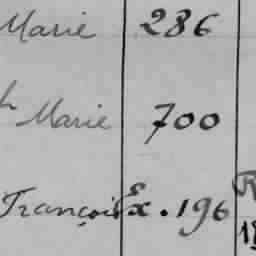 Marie 286
h Marie 700
François Ex. 196